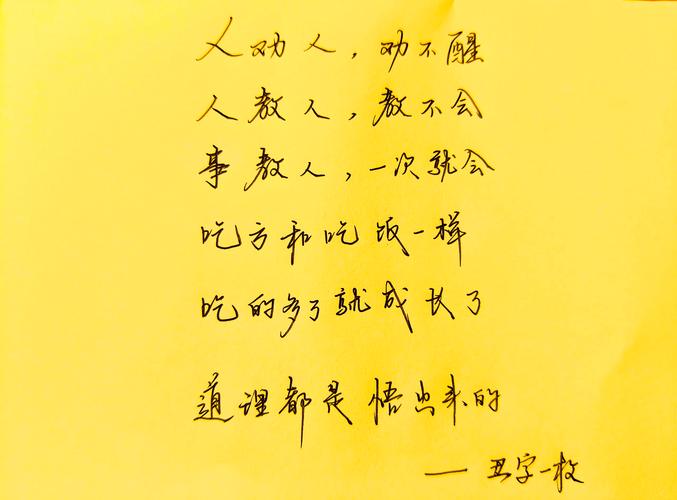 人劝人，劝不醒
人教人，教不会
事教人，一次就会
吃亏和吃饭一样
吃的多了就成长了
道理都是悟出来的
— 丑字一枚